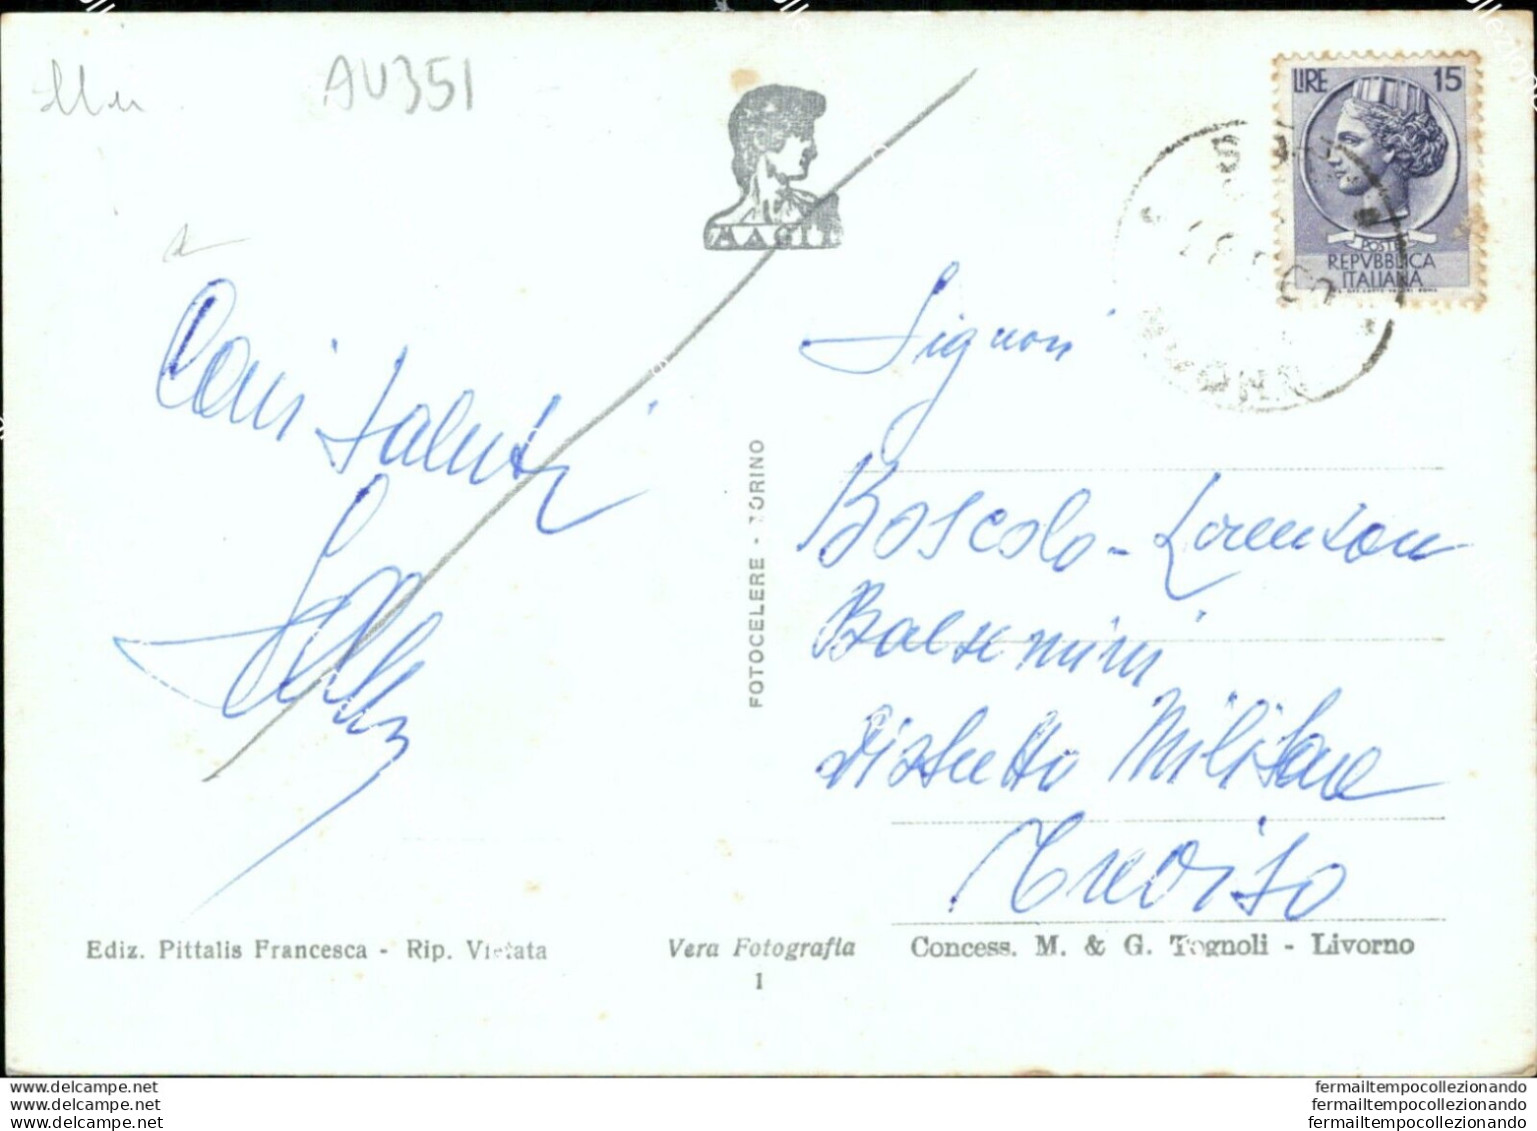 AU351
MAGIT
LIRE 15
POSTE
REPVBBLICA
ITALIANA
Cari saluti
Signori
Boscolo - Lorenzon
Balsemini
Distretto Militare
Treviso
FOTOCELERE - TORINO
Ediz. Pittalis Francesca - Rip. Vietata
Vera Fotografia
1
Concess. M. & G. Tognoli - Livorno
www.delcampe.net
www.delcampe.net
www.delcampe.net
fermailtempocollezionando
fermailtempocollezionando
fermailtempocollezionando